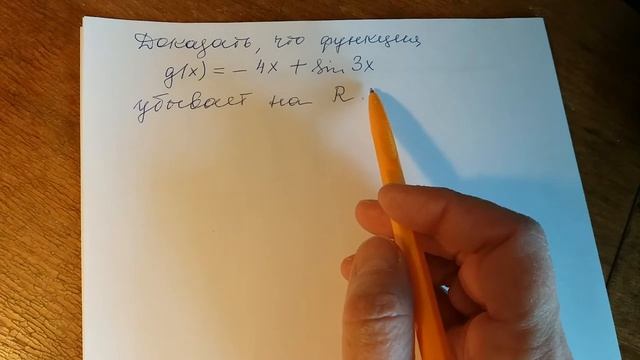 Доказать, что функция
g(x) = - 4x + sin 3x
убывает на R.